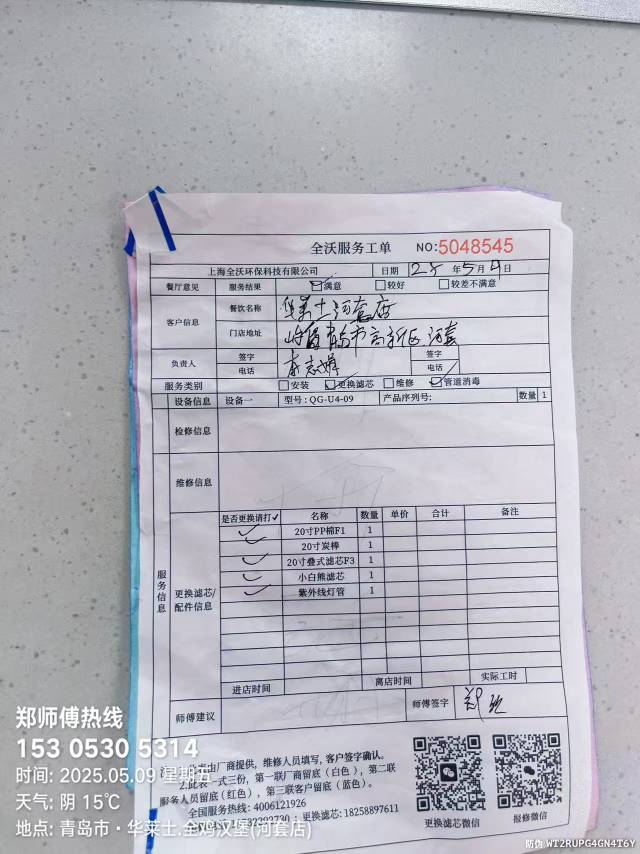 全沃服务工单 NO:5048545
上海全沃环保科技有限公司 日期 25 年 5 月 9 日
餐厅意见 服务结果 满意 较好 较差不满意
客户信息 餐饮名称 华莱士河套店
门店地址 青岛市高新区河套
负责人 签字 签字
电话 李志婵 电话
服务类别 安装 更换滤芯 维修 管道消毒
设备信息 设备一 型号: QG-U4-09 产品序列号: 数量 1
检修信息
维修信息
服务信息
更换滤芯/配件信息
是否更换请打✓ 名称 数量 单价 合计 备注
✓ 20寸PP棉F1 1
✓ 20寸炭棒 1
✓ 20寸叠式滤芯F3 1
✓ 小白熊滤芯 1
✓ 紫外线灯管 1
进店时间 离店时间 实际工时
师傅建议 师傅签字 郑
由厂商提供，维修人员填写，客户签字确认。
2.此表一式三份，第一联厂商留底（白色），第二联
服务人员留底（红色），第三联客户留底（蓝色）。
全国服务热线: 4006121926
18258897611
更换滤芯微信 报修微信
郑师傅热线
153 0530 5314
时间: 2025.05.09 星期五
天气: 阴 15℃
地点: 青岛市·华莱士.全鸡汉堡(河套店)
防伪 WT2RUPG4GN4T6Y